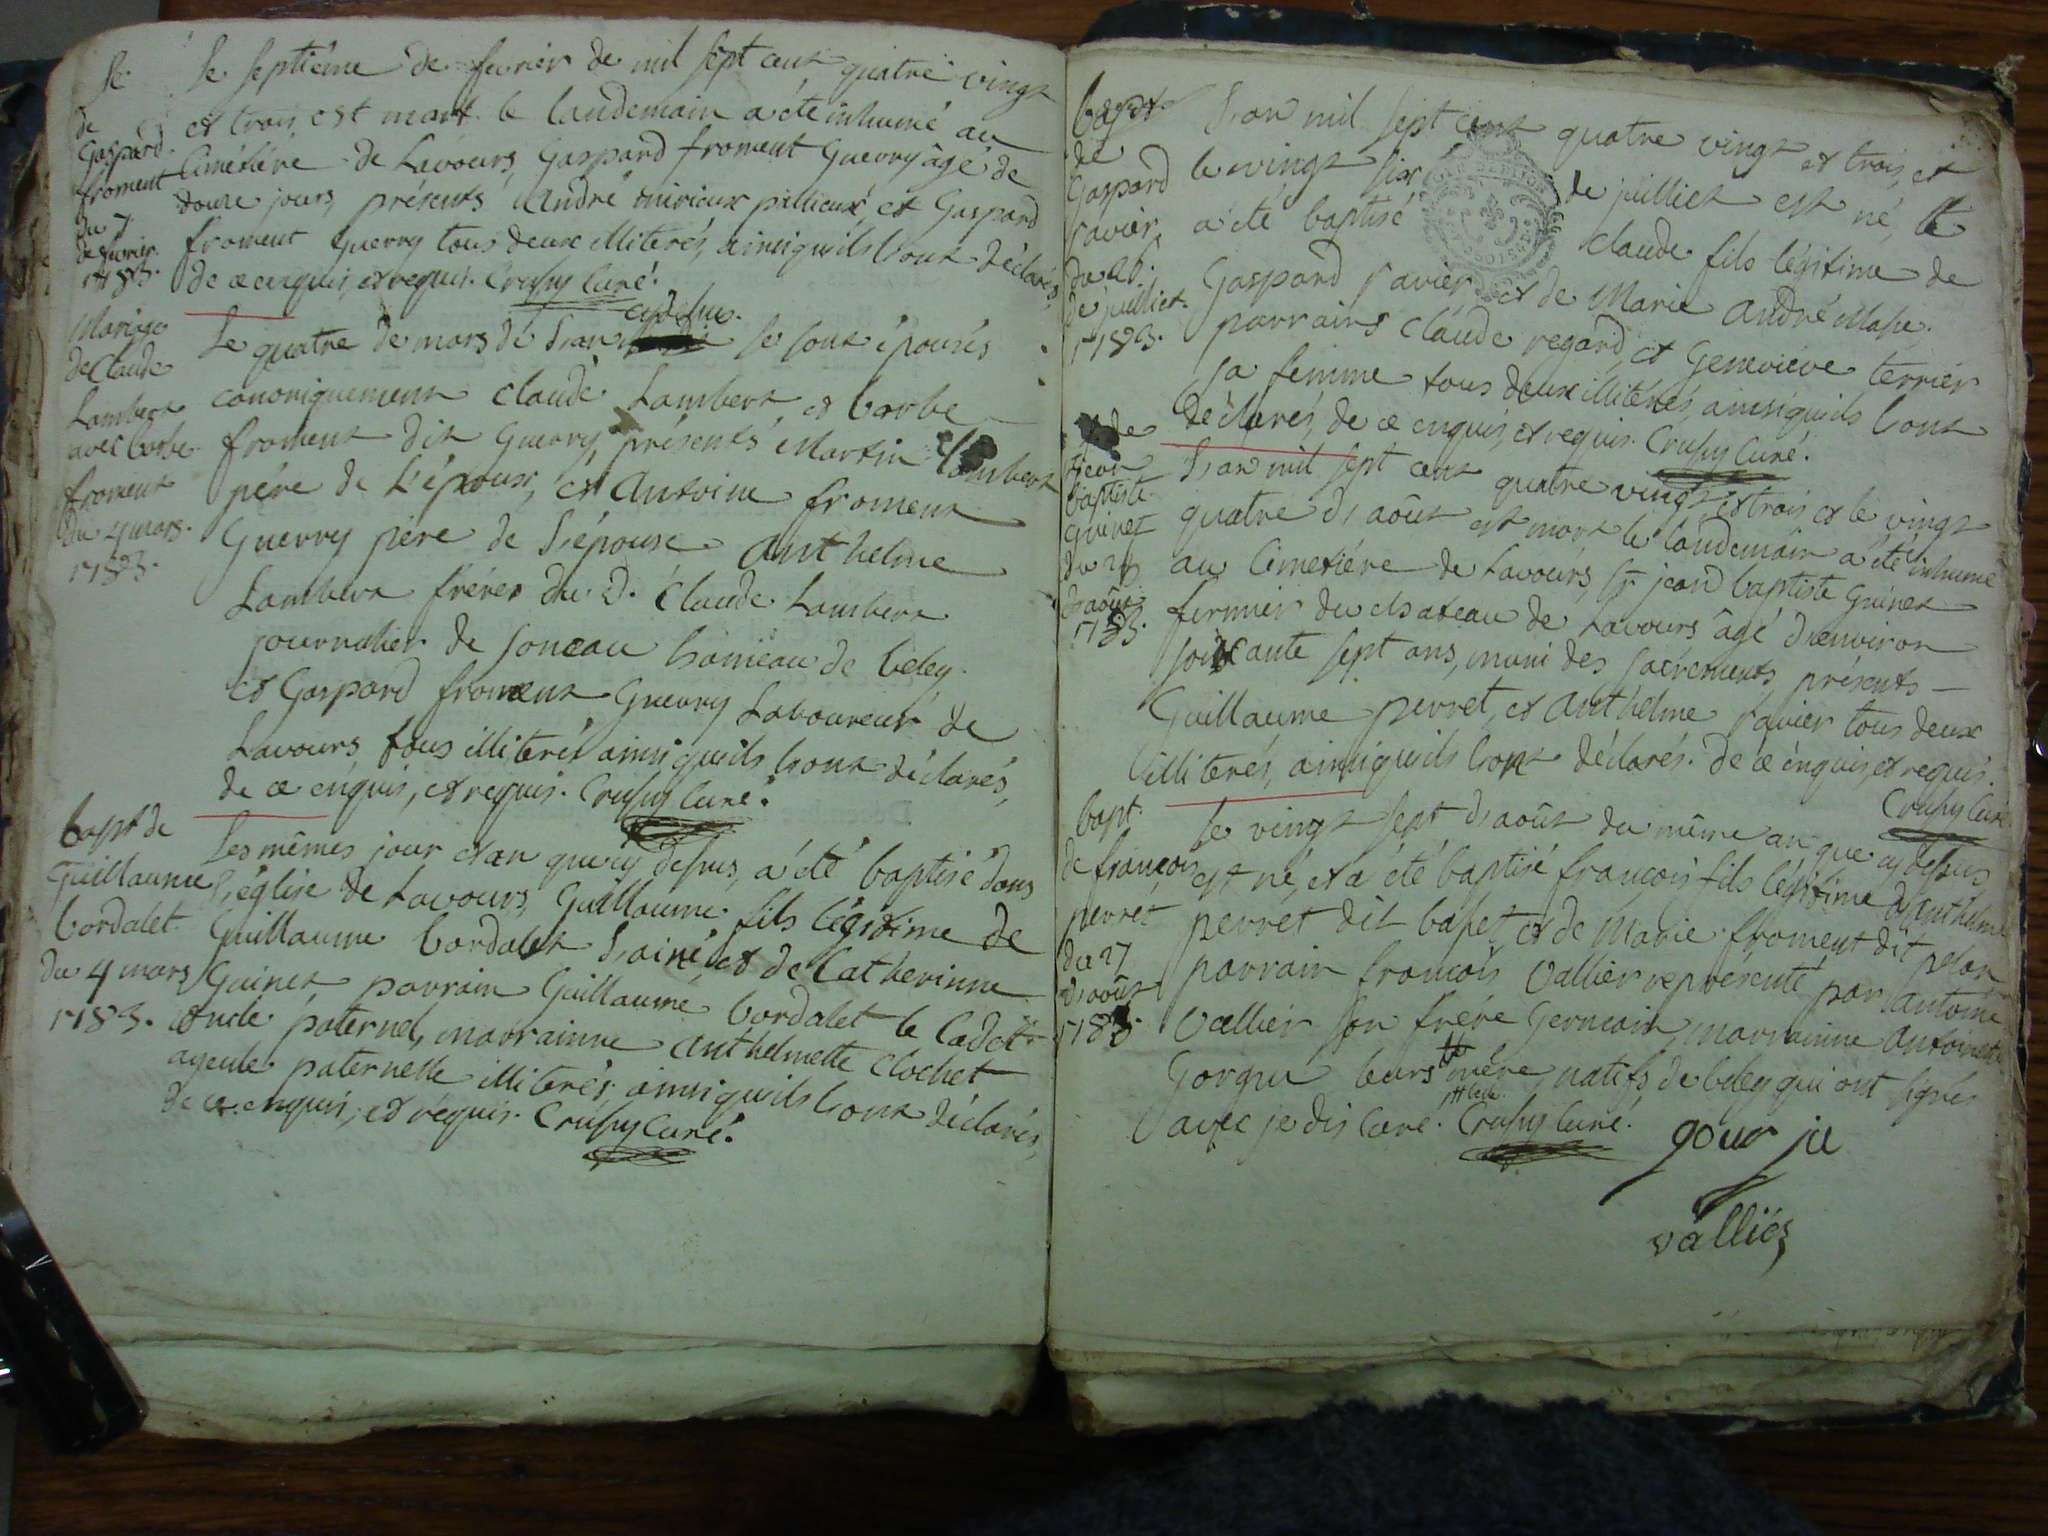 Se.
de
Gaspard
froment
du 7
de fevrier
1783.
Le septiéme de fevrier de mil sept cent quatre vingt
et trois est mort le landemain a été inhumé au
Cimétiére de Lavours Gaspard froment Guerry âgé de
douze jours, présents André et Gaspard
froment Guerry tous deux illiterés, ainsi quils l'ont déclarés,
de ce enquis, et requis. Crussy Curé.
Mariage
de Claude
Lambert
avec barbe
froment
du 4 mars
1783.
cy dessus.
Le quatre de mars de l'an se sont épousés
canoniquement Claude Lambert et barbe
froment dit Guerry, présents Martin Lambert
pére de l'époux, et Antoine froment
Guerry pére de l'épouse Anthelme
Lambert fréres du d. Claude Lambert
journalier de Sonçau hameau de beley
et Gaspard froment Guerry Laboureur de
Lavours tous illiterés ainsi quils l'ont déclarés,
de ce enquis, et requis. Crussy Curé.
bapt de
Guillaume
bordalet
du 4 mars
1783.
Les mêmes jour et an que cy dessus, a été baptisé dans
l'église de Lavours, Guillaume fils légitime de
Guillaume bordalet L'ainé, et de Catherinne
Guinet parrain Guillaume bordalet le Cadet
oncle paternel, marrainne Anthelmette Clochet
ayeule paternelle illiterés, ainsi quils l'ont déclarés,
de ce enquis, et requis. Crussy Curé.
bapt
de
Gaspard
savier
du 26.
de juilliet.
1783.
L'an mil sept cent quatre vingt et trois, et
le vingt six de juilliet est né, et
a été baptisé Claude fils légitime de
Gaspard savier, et de Marie André
parrains Claude regard, et Geneviéve terrier
sa femme tous deux illiterés, ainsi quils l'ont
déclarés, de ce enquis, et requis. Crussy Curé.
de
jean
baptiste
guinet
du 24
d'août
1783.
L'an mil sept cent quatre vingt, et trois, et le vingt
quatre d'août est mort le landemain a été inhumé
au Cimetiére de Lavours, Sr. jean baptiste Guinet
fermier du chateau de Lavours âgé d'environ
soixante sept ans, muni des sacrements présents
Guillaume perret, et Anthelme savier tous deux
illiterés, ainsi quils l'ont déclarés. de ce enquis, et requis.
Crussy Curé
bapt.
de françois
perret
du 27
d'août
1783.
Le vingt sept d'août du même an que cy dessus
est né, et a été baptisé françois fils légitime d'Anthelme
perret dit bapet, et de Marie froment dit
parrain françois Vallier représenté par Antoine
Vallier son frére Germain, marrainne Antoinette
Gorgui leurs mére natifs de beley qui ont signés
avec je dis Curé. Crussy Curé.
gour ju
valliés